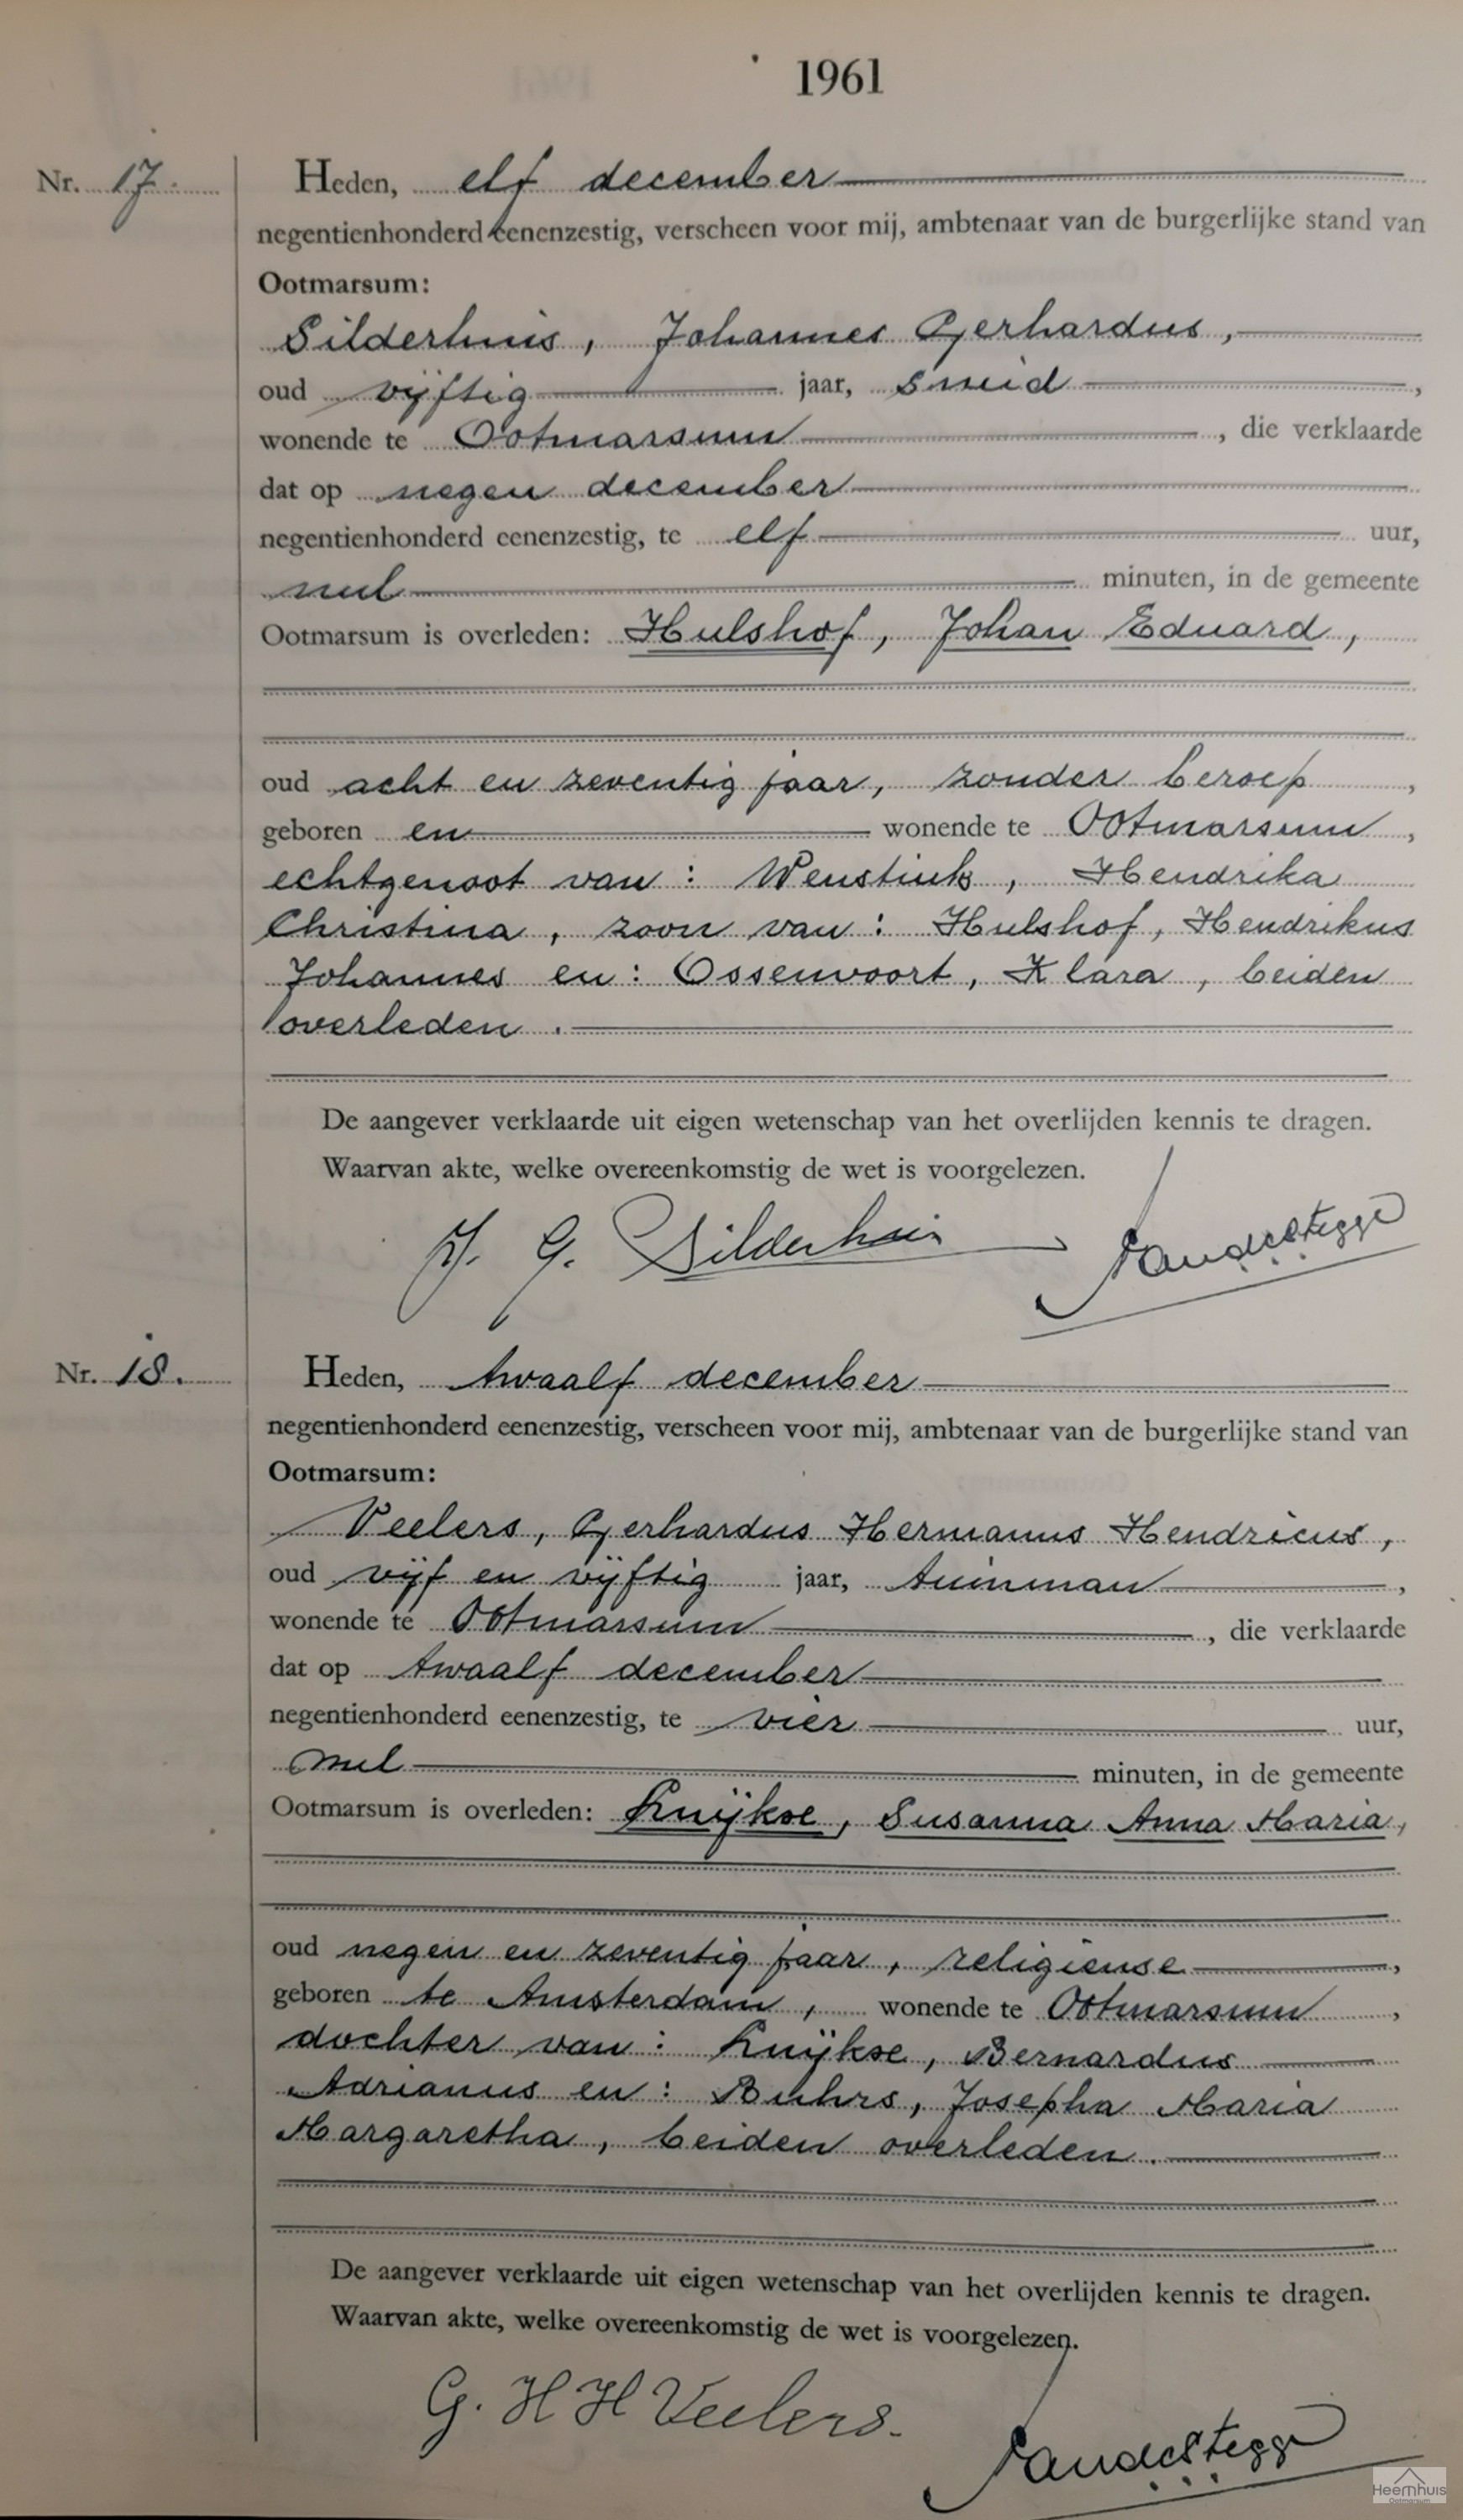 1961
Nr. 17.
Heden, elf december
negentienhonderd eenenzestig, verscheen voor mij, ambtenaar van de burgerlijke stand van
Ootmarsum:
Silderhuis, Johannes Gerhardus,
oud vijftig jaar, smid,
wonende te Ootmarsum, die verklaarde
dat op negen december
negentienhonderd eenenzestig, te elf uur,
nul minuten, in de gemeente
Ootmarsum is overleden: Hulshof, Johan Eduard,
oud acht en zeventig jaar, zonder beroep,
geboren en wonende te Ootmarsum,
echtgenoot van: Wenstink, Hendrika
Christina, zoon van: Hulshof, Hendrikus
Johannes en: Ossenvoort, Klara, beiden
overleden.
De aangever verklaarde uit eigen wetenschap van het overlijden kennis te dragen.
Waarvan akte, welke overeenkomstig de wet is voorgelezen.
J. G. Silderhuis
Nr. 18.
Heden, twaalf december
negentienhonderd eenenzestig, verscheen voor mij, ambtenaar van de burgerlijke stand van
Ootmarsum:
Veelers, Gerhardus Hermanus Hendricus,
oud vijf en vijftig jaar, tuinman,
wonende te Ootmarsum, die verklaarde
dat op twaalf december
negentienhonderd eenenzestig, te vier uur,
nul minuten, in de gemeente
Ootmarsum is overleden: Kruijkse, Susanna Anna Maria,
oud negen en zeventig jaar, religieuse,
geboren te Amsterdam, wonende te Ootmarsum,
dochter van: Kruijkse, Bernardus
Adrianus en: Buhrs, Josepha Maria
Margaretha, beiden overleden.
De aangever verklaarde uit eigen wetenschap van het overlijden kennis te dragen.
Waarvan akte, welke overeenkomstig de wet is voorgelezen.
G. H H Veelers.
Heemhuis
Ootmarsum